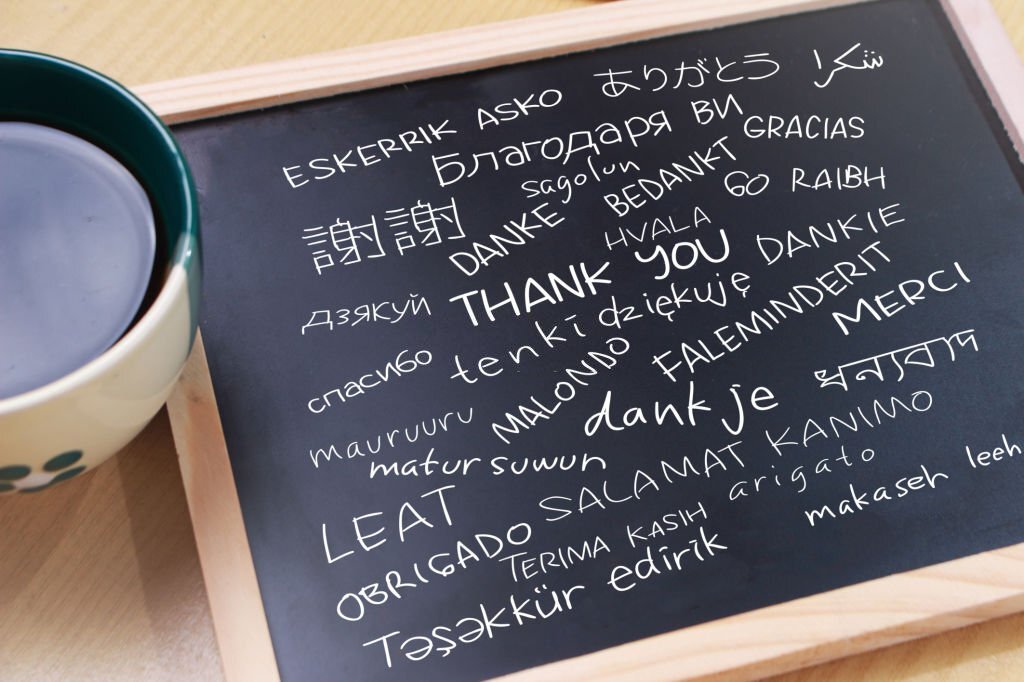 ありがとう
شكرا
ESKERRIK ASKO
Благодаря ВИ
GRACIAS
sagolun
BEDANKT
GO RAIBH
謝謝
DANKE
HVALA
DANKIE
дзякуй
THANK YOU
dziękuję
FALEMINDERIT
MERCI
спасибо
tenkī
MALONDO
dank je
ধন্যবাদ
mauruuru
matur suwun
SALAMAT KANIMO
LEAT
arigato
leeh
OBRIGADO
TERIMA KASIH
makaseh
Təşəkkür edirik